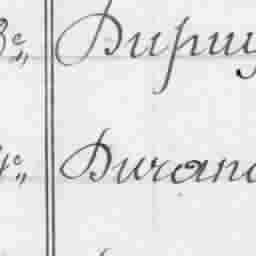 3e,, Dupuy
4e,, Durand